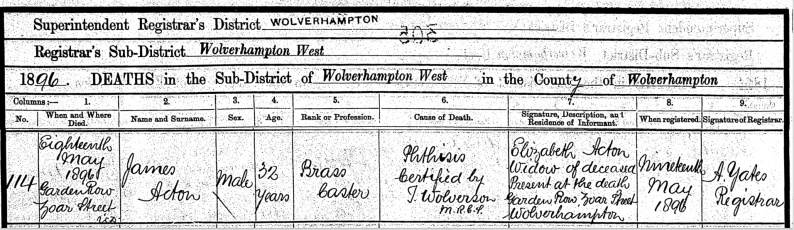 Superintendent Registrar's District WOLVERHAMPTON
Registrar's Sub-District Wolverhampton West
1896. DEATHS in the Sub-District of Wolverhampton West in the County of Wolverhampton
Columns:— 1. 2. 3. 4. 5. 6. 7. 8. 9.
No. When and Where Died. Name and Surname. Sex. Age. Rank or Profession. Cause of Death. Signature, Description, and Residence of Informant. When registered. Signature of Registrar.
114
Eighteenth
May
1896
Garden Row
Zoar Street
James
Acton
Male
32
years
Brass
Caster
Phthisis
Certified by
J. Wolverson
M.R.C.S.
Elizabeth Acton
Widow of deceased
Present at the death
Garden Row, Zoar Street
Wolverhampton
Nineteenth
May
1896
A. Yates
Registrar